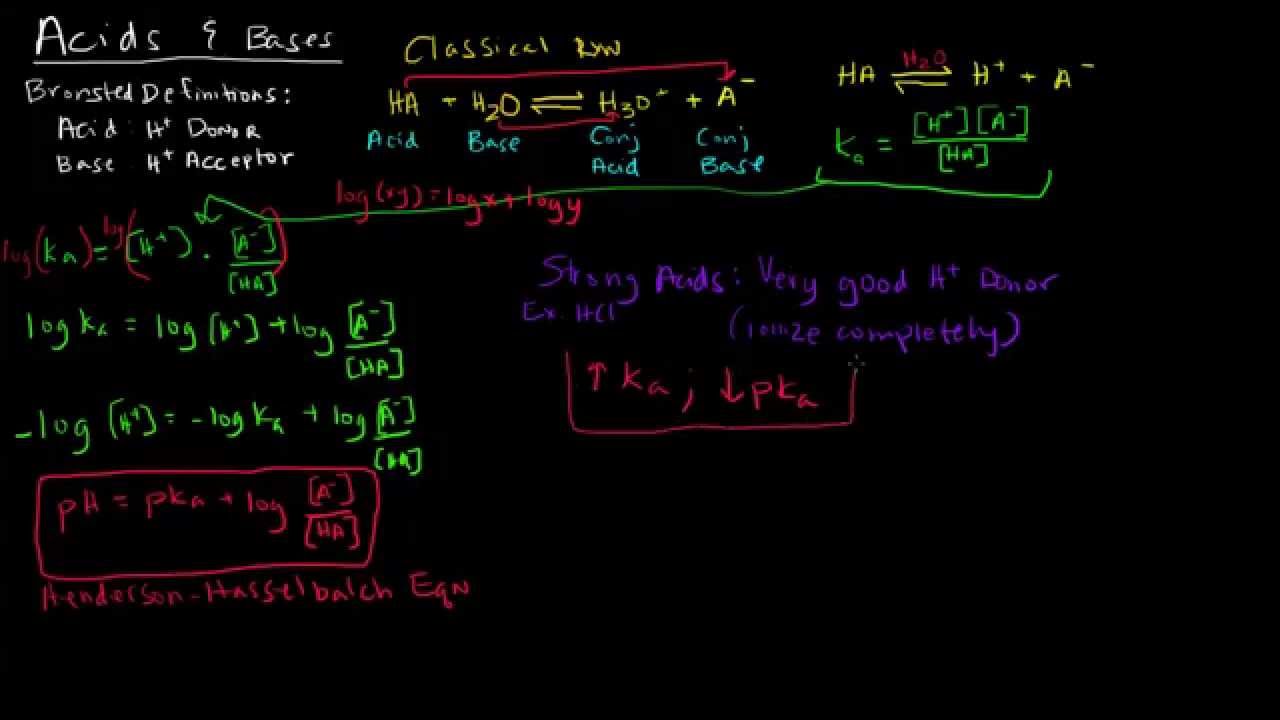 Acids & Bases
Bronsted Definitions:
Acid: H+ Donor
Base: H+ Acceptor
Classical Rxn
HA + H2O ⇌ H3O+ + A−
Acid Base Conj Acid Conj Base
HA ⇌ H+ + A−
H2O
Ka = [H+][A−] / [HA]
log(xy) = logx + logy
log(Ka) = log([H+] · [A−] / [HA])
log Ka = log[H+] + log [A−] / [HA]
-log [H+] = -log Ka + log [A−] / [HA]
pH = pKa + log [A−] / [HA]
Henderson-Hasselbalch Eqn
Strong Acids: Very good H+ Donor
Ex. HCl (ionize completely)
↑ Ka ; ↓ pKa